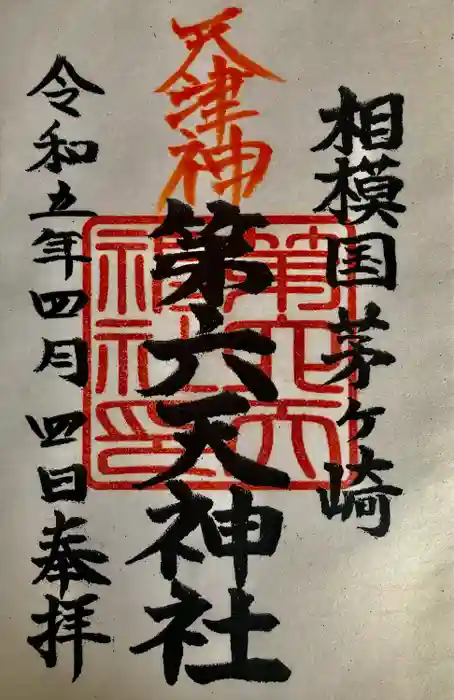 相模国茅ヶ崎
天津神
第六天神社
令和五年四月四日奉拝